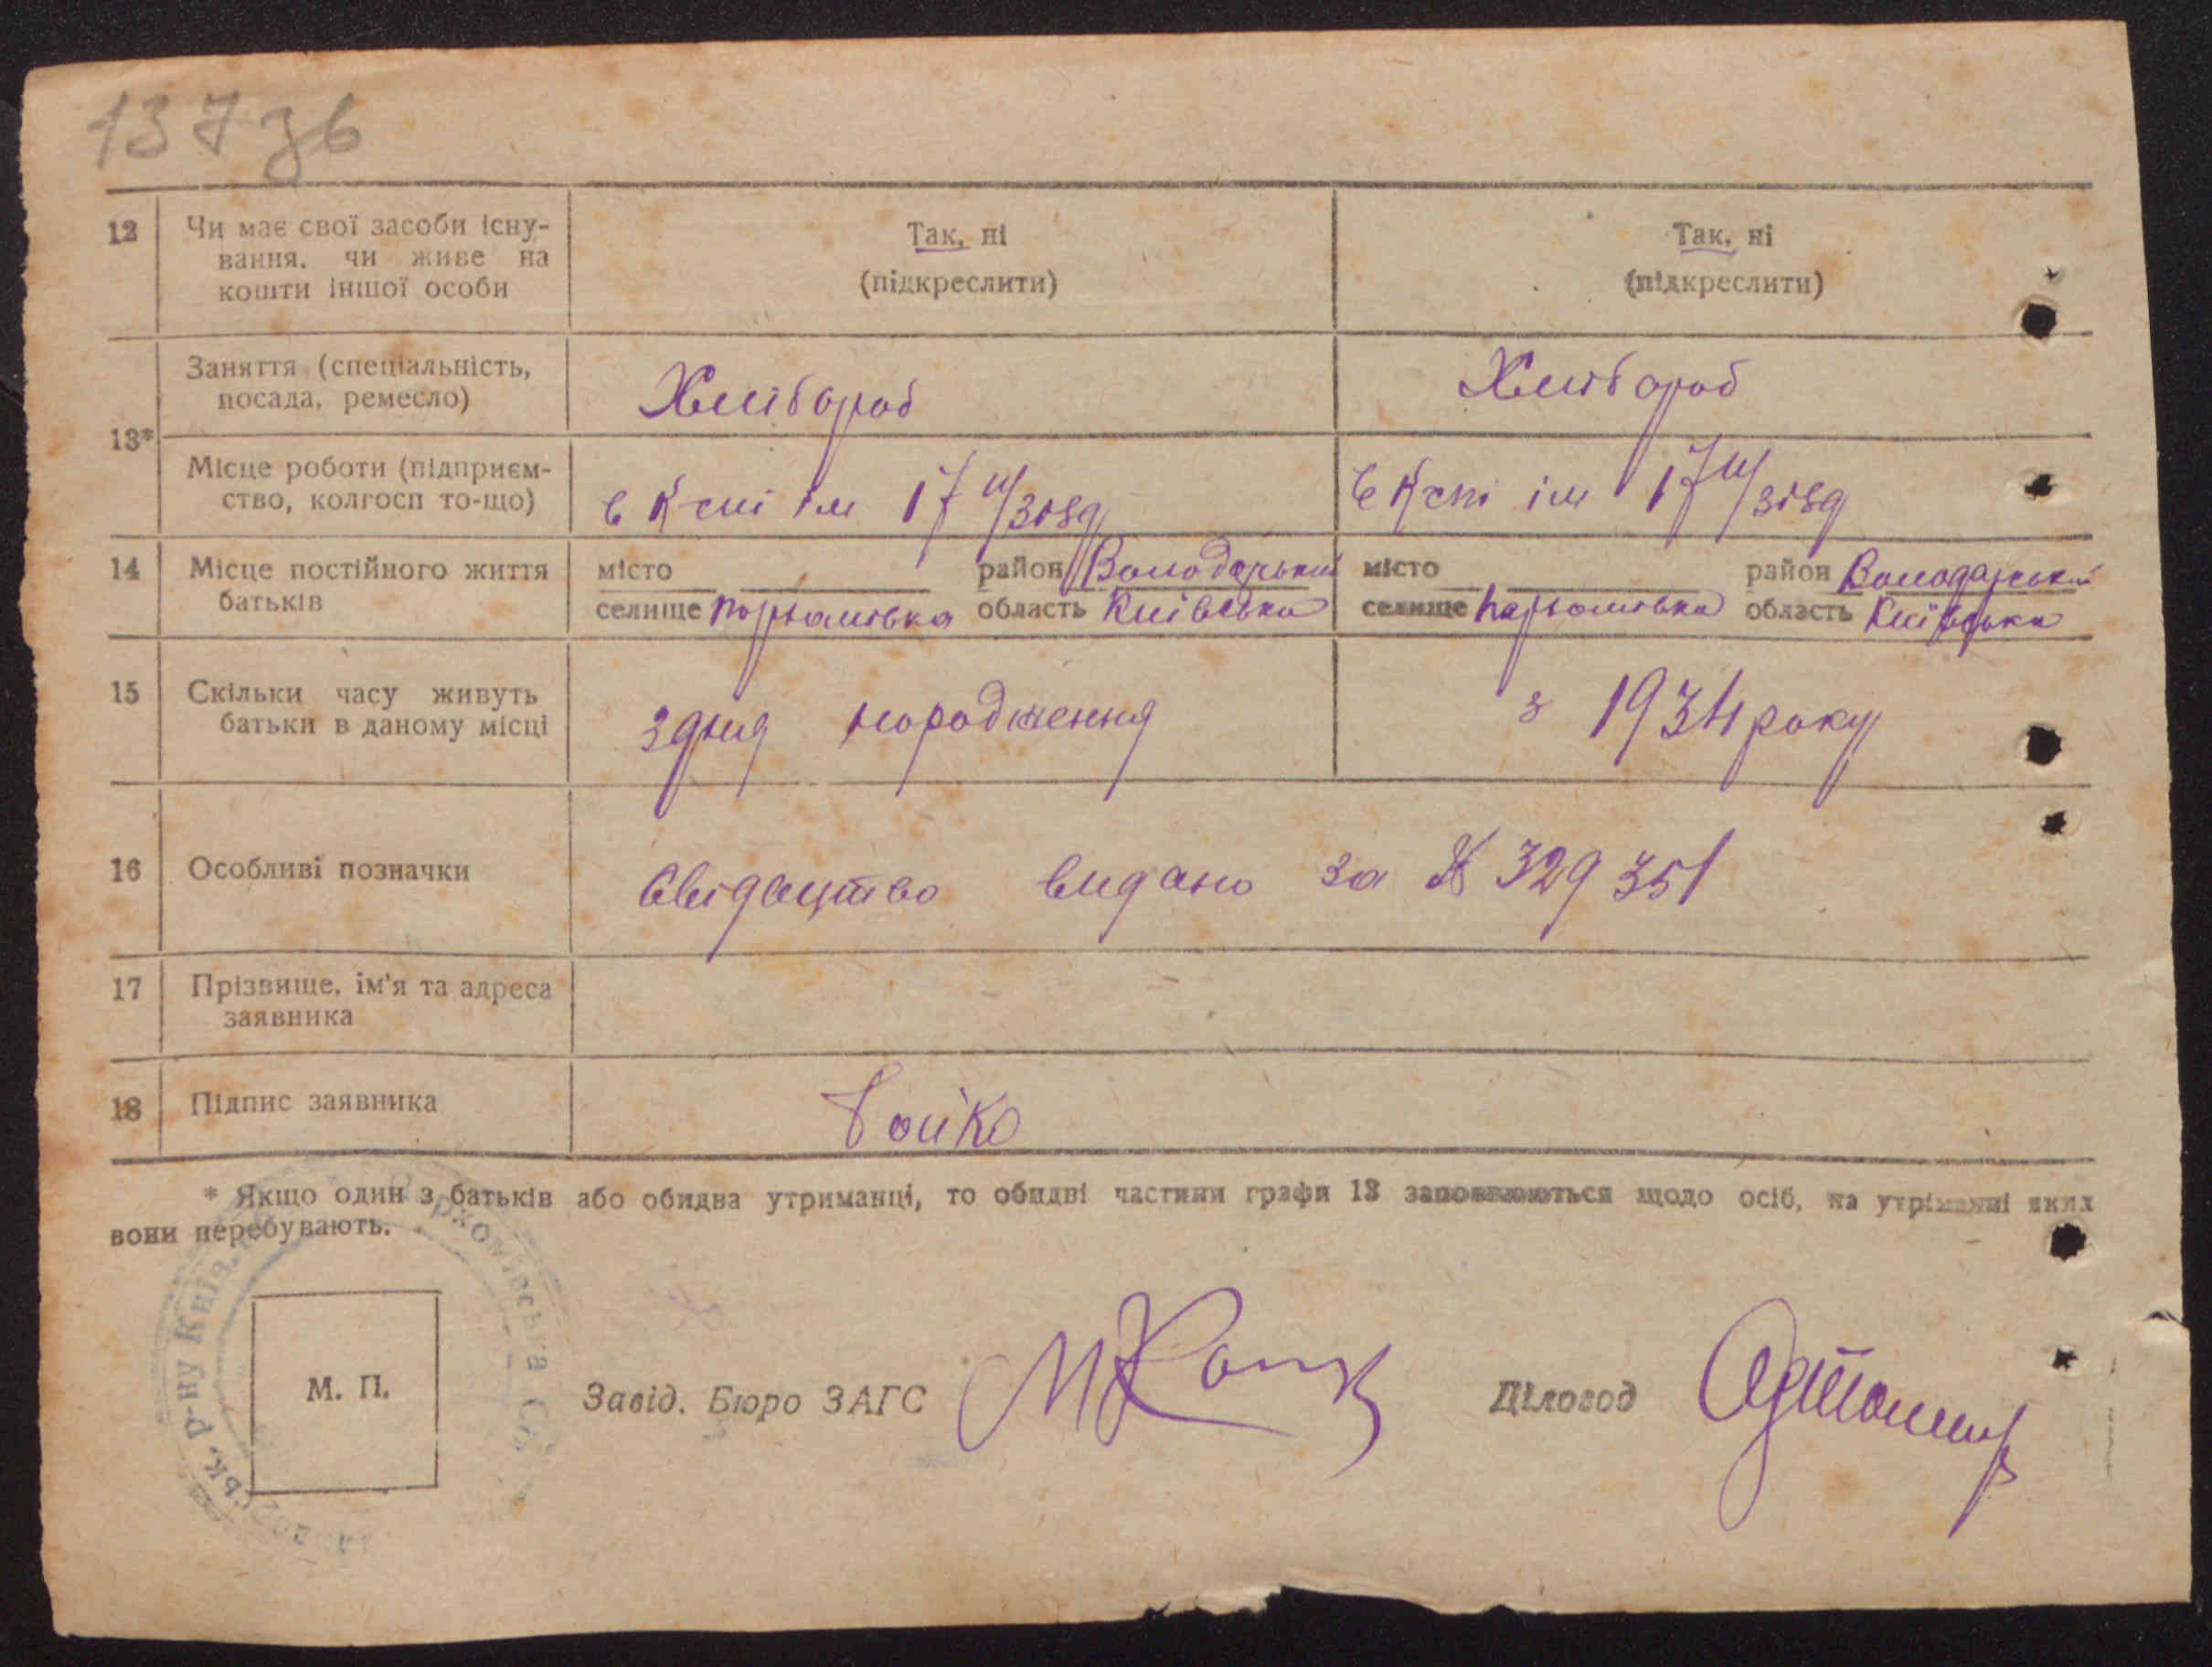 137 зв
12 Чи має свої засоби існу-
вання, чи живе на
кошти іншої особи
Так, ні
(підкреслити)
Так, ні
(підкреслити)
13*
Заняття (спеціальність,
посада, ремесло)
Хлібороб
Хлібороб
Місце роботи (підприєм-
ство, колгосп то-що)
в К-спі ім 17 п/зізд
в К-спі ім 17 п/зізд
14 Місце постійного життя
батьків
місто район Володарський
селище Пархомівка область Київська
місто район Володарський
селище Пархомівка область Київська
15 Скільки часу живуть
батьки в даному місці
здня народження
з 1934 року
16 Особливі позначки
Свідоцтво видано за № 329351
17 Прізвище, ім'я та адреса
заявника
18 Підпис заявника
Бойко
* Якщо один з батьків або обидва утриманці, то обидві частини графи 13 заповнюються щодо осіб, на утріманні яких
вони перебувають.
М. П.
Завід. Бюро ЗАГС
Діловод
ськ. р-ну Київ.
рхомівська Сі